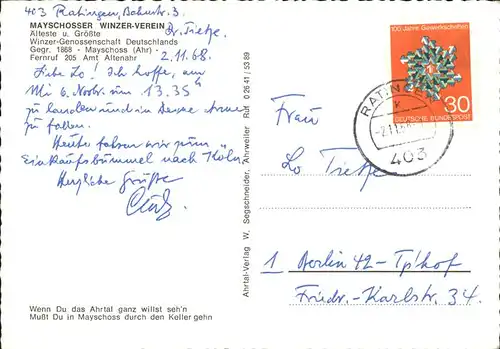 403 Ratingen, Bahnstr. 3.
MAYSCHOSSER WINZER-VEREIN
Dr. Tietze
Älteste u. Größte
Winzer-Genossenschaft Deutschlands
Gegr. 1868 - Mayschoss (Ahr)
Fernruf 205 Amt Altenahr
2.11.68
Liebe Lo! Ich hoffe, am
Mi 6. Novbr. um 13.35 h
zu landen und in Deine Arme
zu fallen.
Heute fahren wir zum
Einkaufsbummel nach Köln
Herzliche Grüße
Wenn Du das Ahrtal ganz willst seh'n
Mußt Du in Mayschoss durch den Keller gehn
Ahrtal-Verlag W. Segschneider, Ahrweiler Ruf 0 26 41 / 53 89
100 Jahre Gewerkschaften
30
DEUTSCHE BUNDESPOST
RATINGEN
403
Frau
Lo Tietze
1 Berlin 42-Tp'hof
Friedr.-Karlstr. 34.